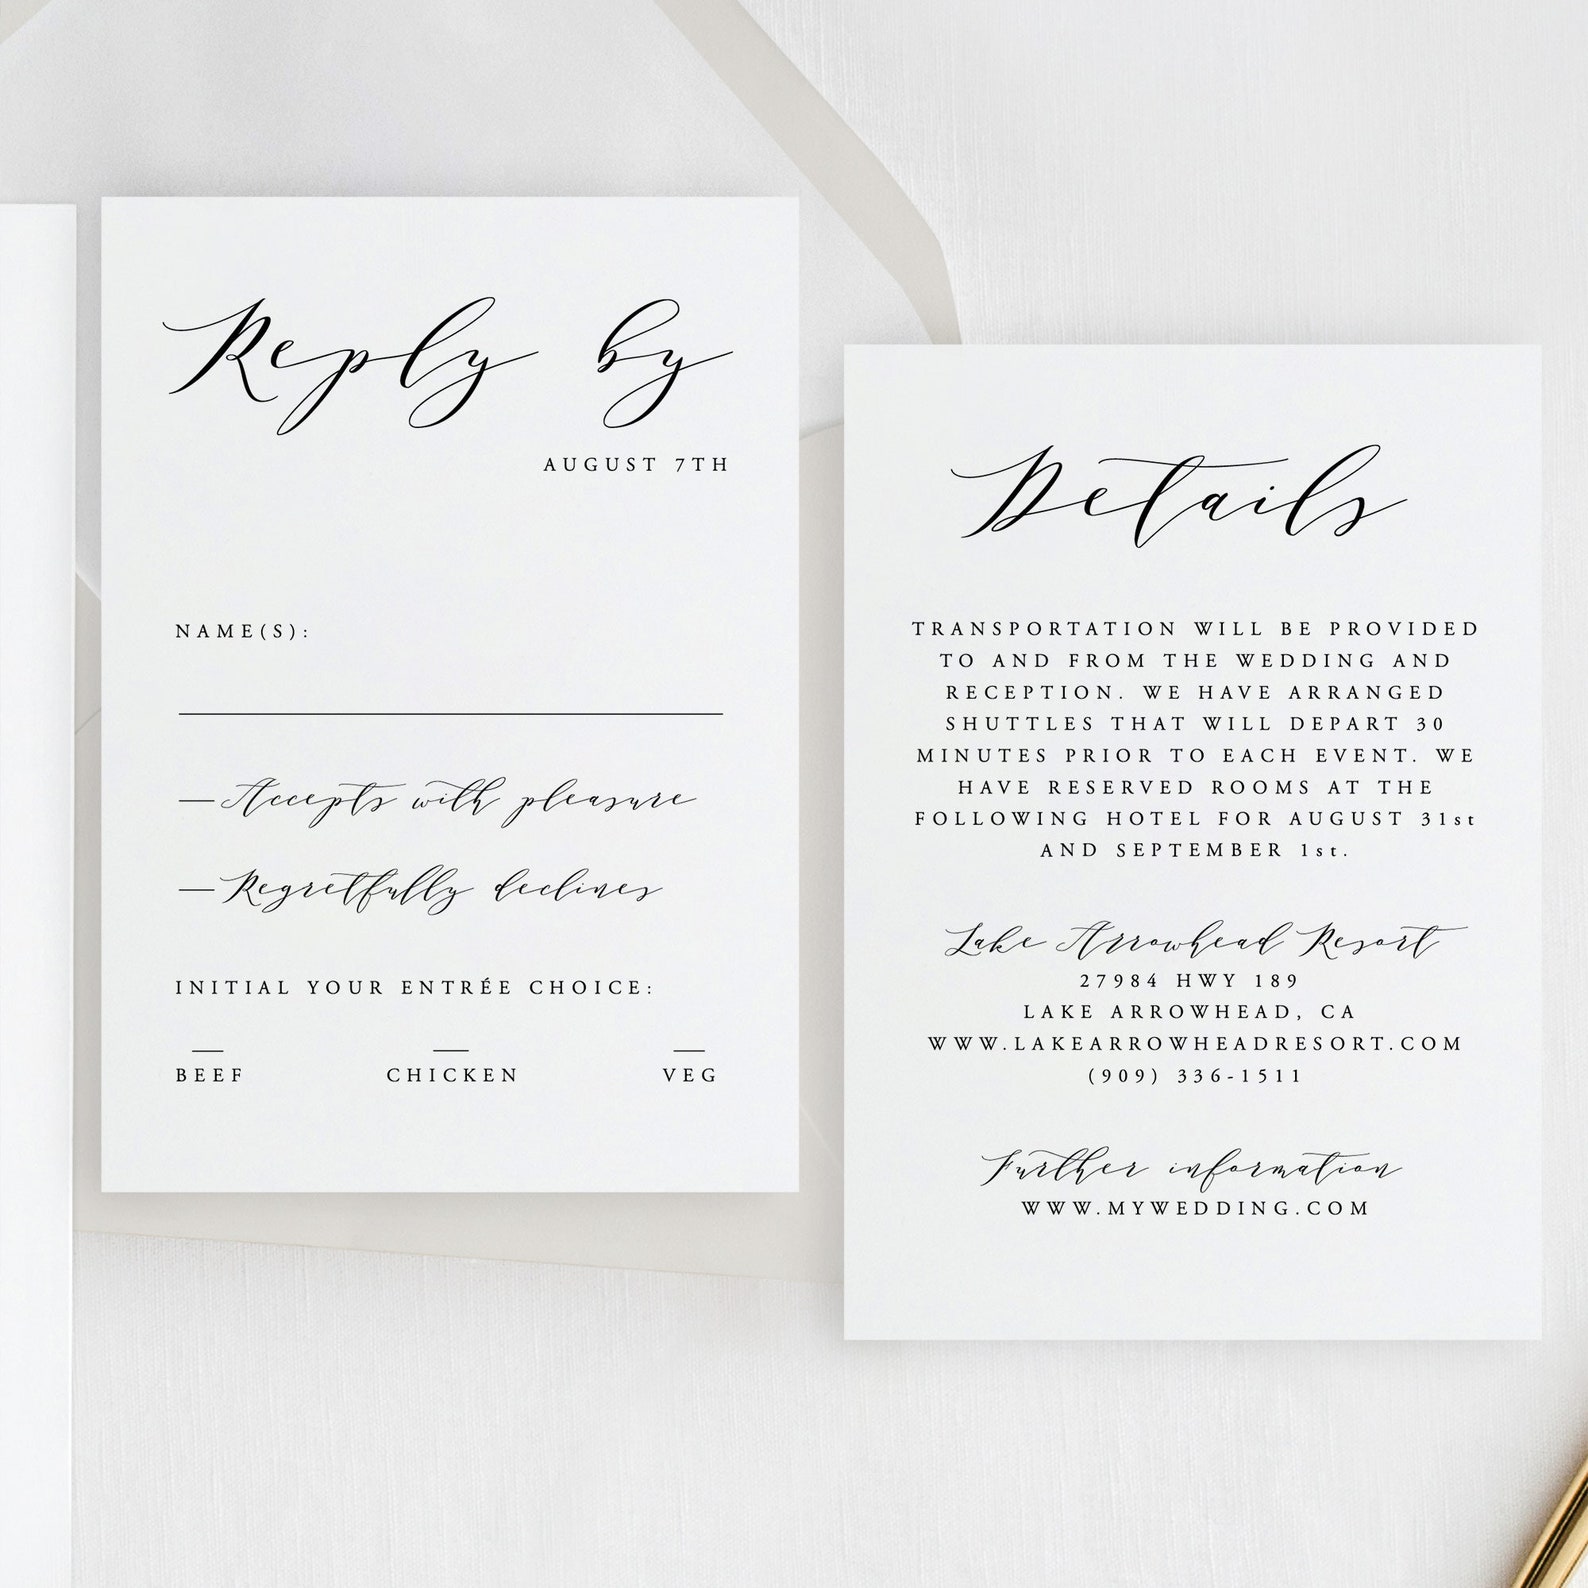 Reply by
AUGUST 7TH
NAME(S):
Accepts with pleasure
Regretfully declines
INITIAL YOUR ENTRÉE CHOICE:
BEEF CHICKEN VEG
Details
TRANSPORTATION WILL BE PROVIDED
TO AND FROM THE WEDDING AND
RECEPTION. WE HAVE ARRANGED
SHUTTLES THAT WILL DEPART 30
MINUTES PRIOR TO EACH EVENT. WE
HAVE RESERVED ROOMS AT THE
FOLLOWING HOTEL FOR AUGUST 31st
AND SEPTEMBER 1st.
Lake Arrowhead Resort
27984 HWY 189
LAKE ARROWHEAD, CA
WWW.LAKEARROWHEADRESORT.COM
(909) 336-1511
Further information
WWW.MYWEDDING.COM